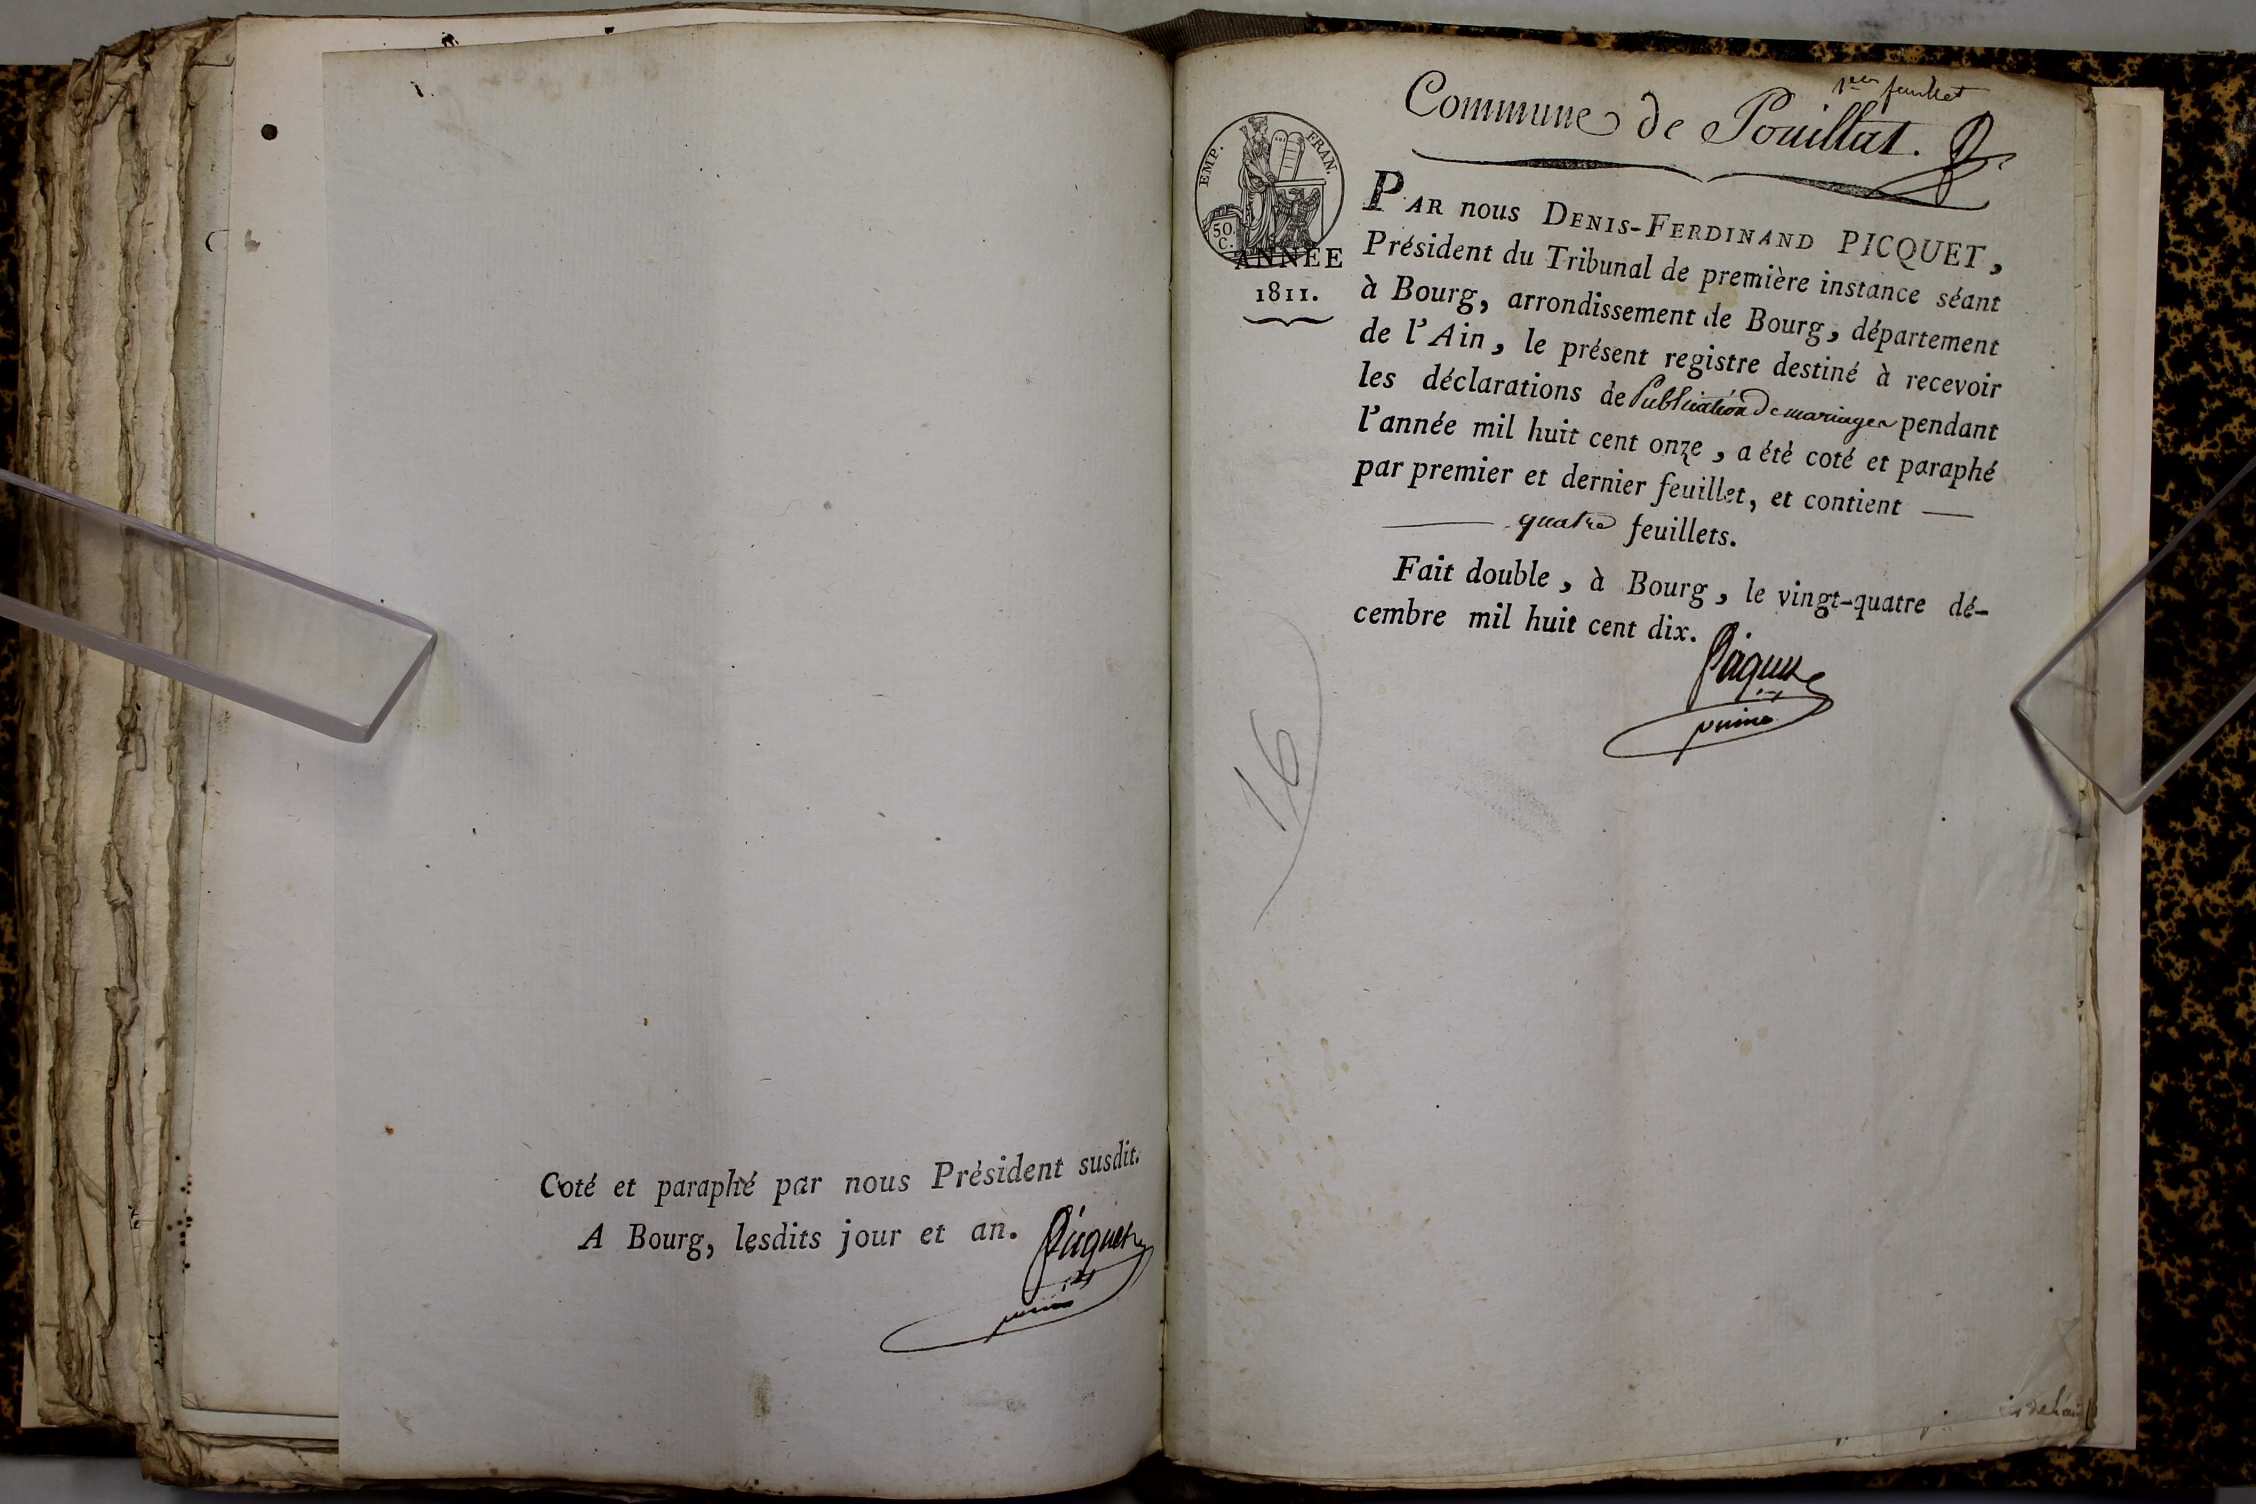 Coté et paraphé par nous Président susdit.
A Bourg, lesdits jour et an. Picquet
1er feuillet
Commune de Pouillat.
EMP. FRAN.
50.
C.
ANNÉE
1811.
PAR nous DENIS-FERDINAND PICQUET,
Président du Tribunal de première instance séant
à Bourg, arrondissement de Bourg, département
de l'Ain, le présent registre destiné à recevoir
les déclarations de Publication de mariages pendant
l'année mil huit cent onze, a été coté et paraphé
par premier et dernier feuillet, et contient —
— quatre feuillets.
Fait double, à Bourg, le vingt-quatre dé-
cembre mil huit cent dix.
Picquet
16